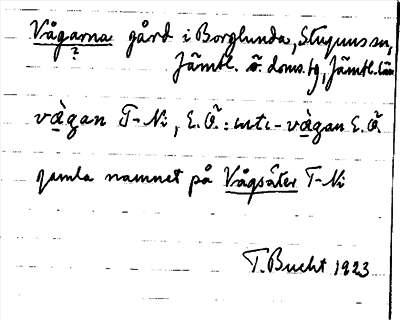 Vågarna gård i Borglunda, Stuguns sn,
?
Jämtl. ö. doms. tg, Jämtl. län
vàgan T-Ni, E.Ö.: inti-vàgan E.Ö.
gamla namnet på Vågsäter T-Ni
T. Bucht 1923